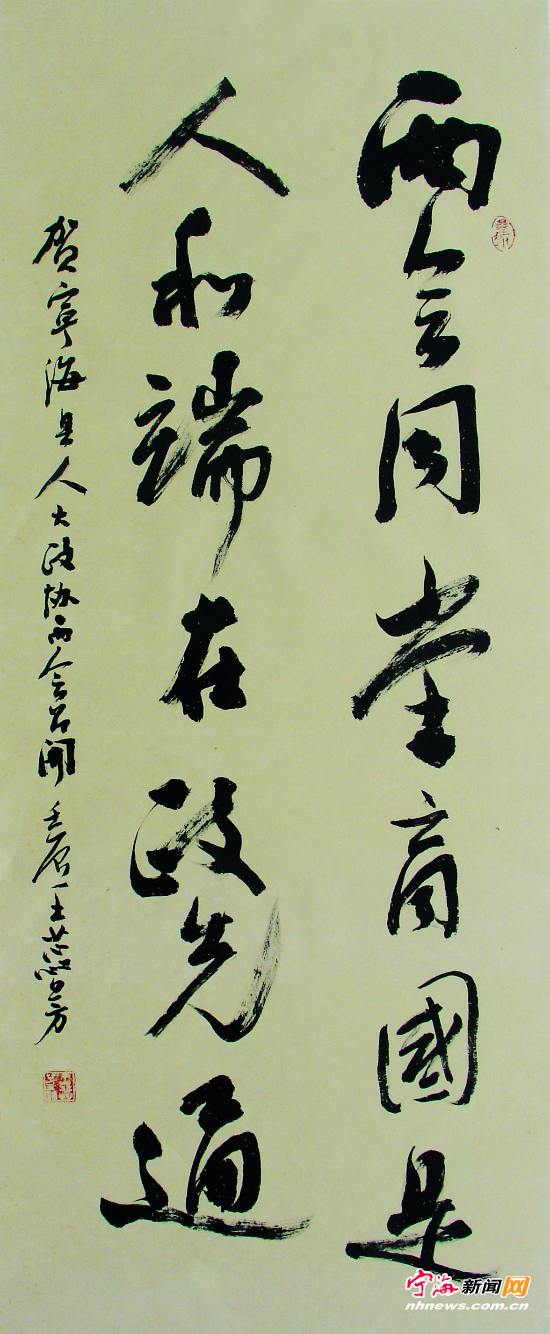 两会同堂商國是
人和端在政先通
贺宁海县人大政协两会召開 壬辰 王
宁海新闻网
nhnews.com.cn